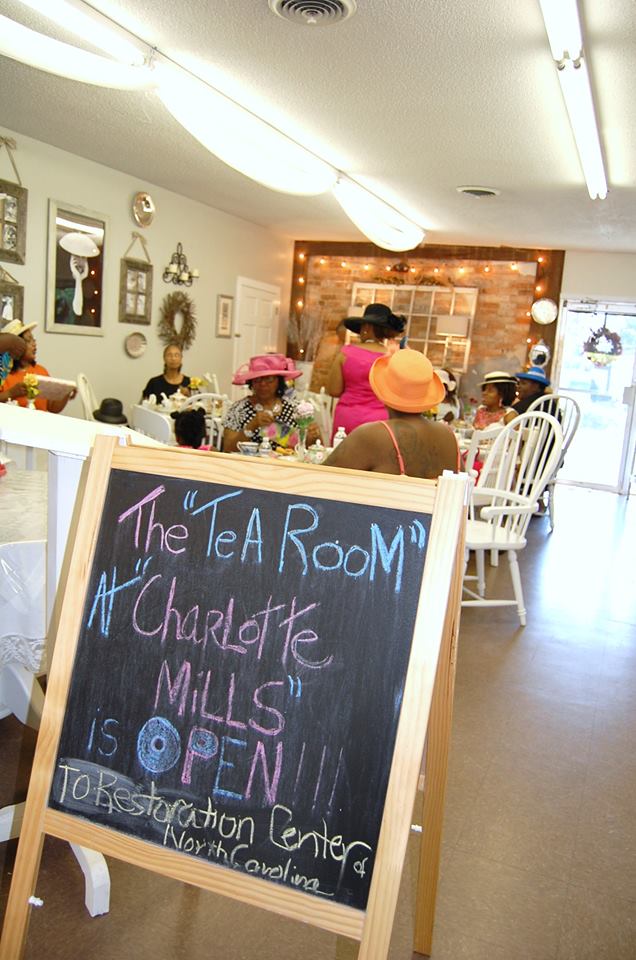 The "TeA RooM"
At "CHARLoTTe
MiLLS"
is OPEN!!!
To Restoration Center of
North Carolina